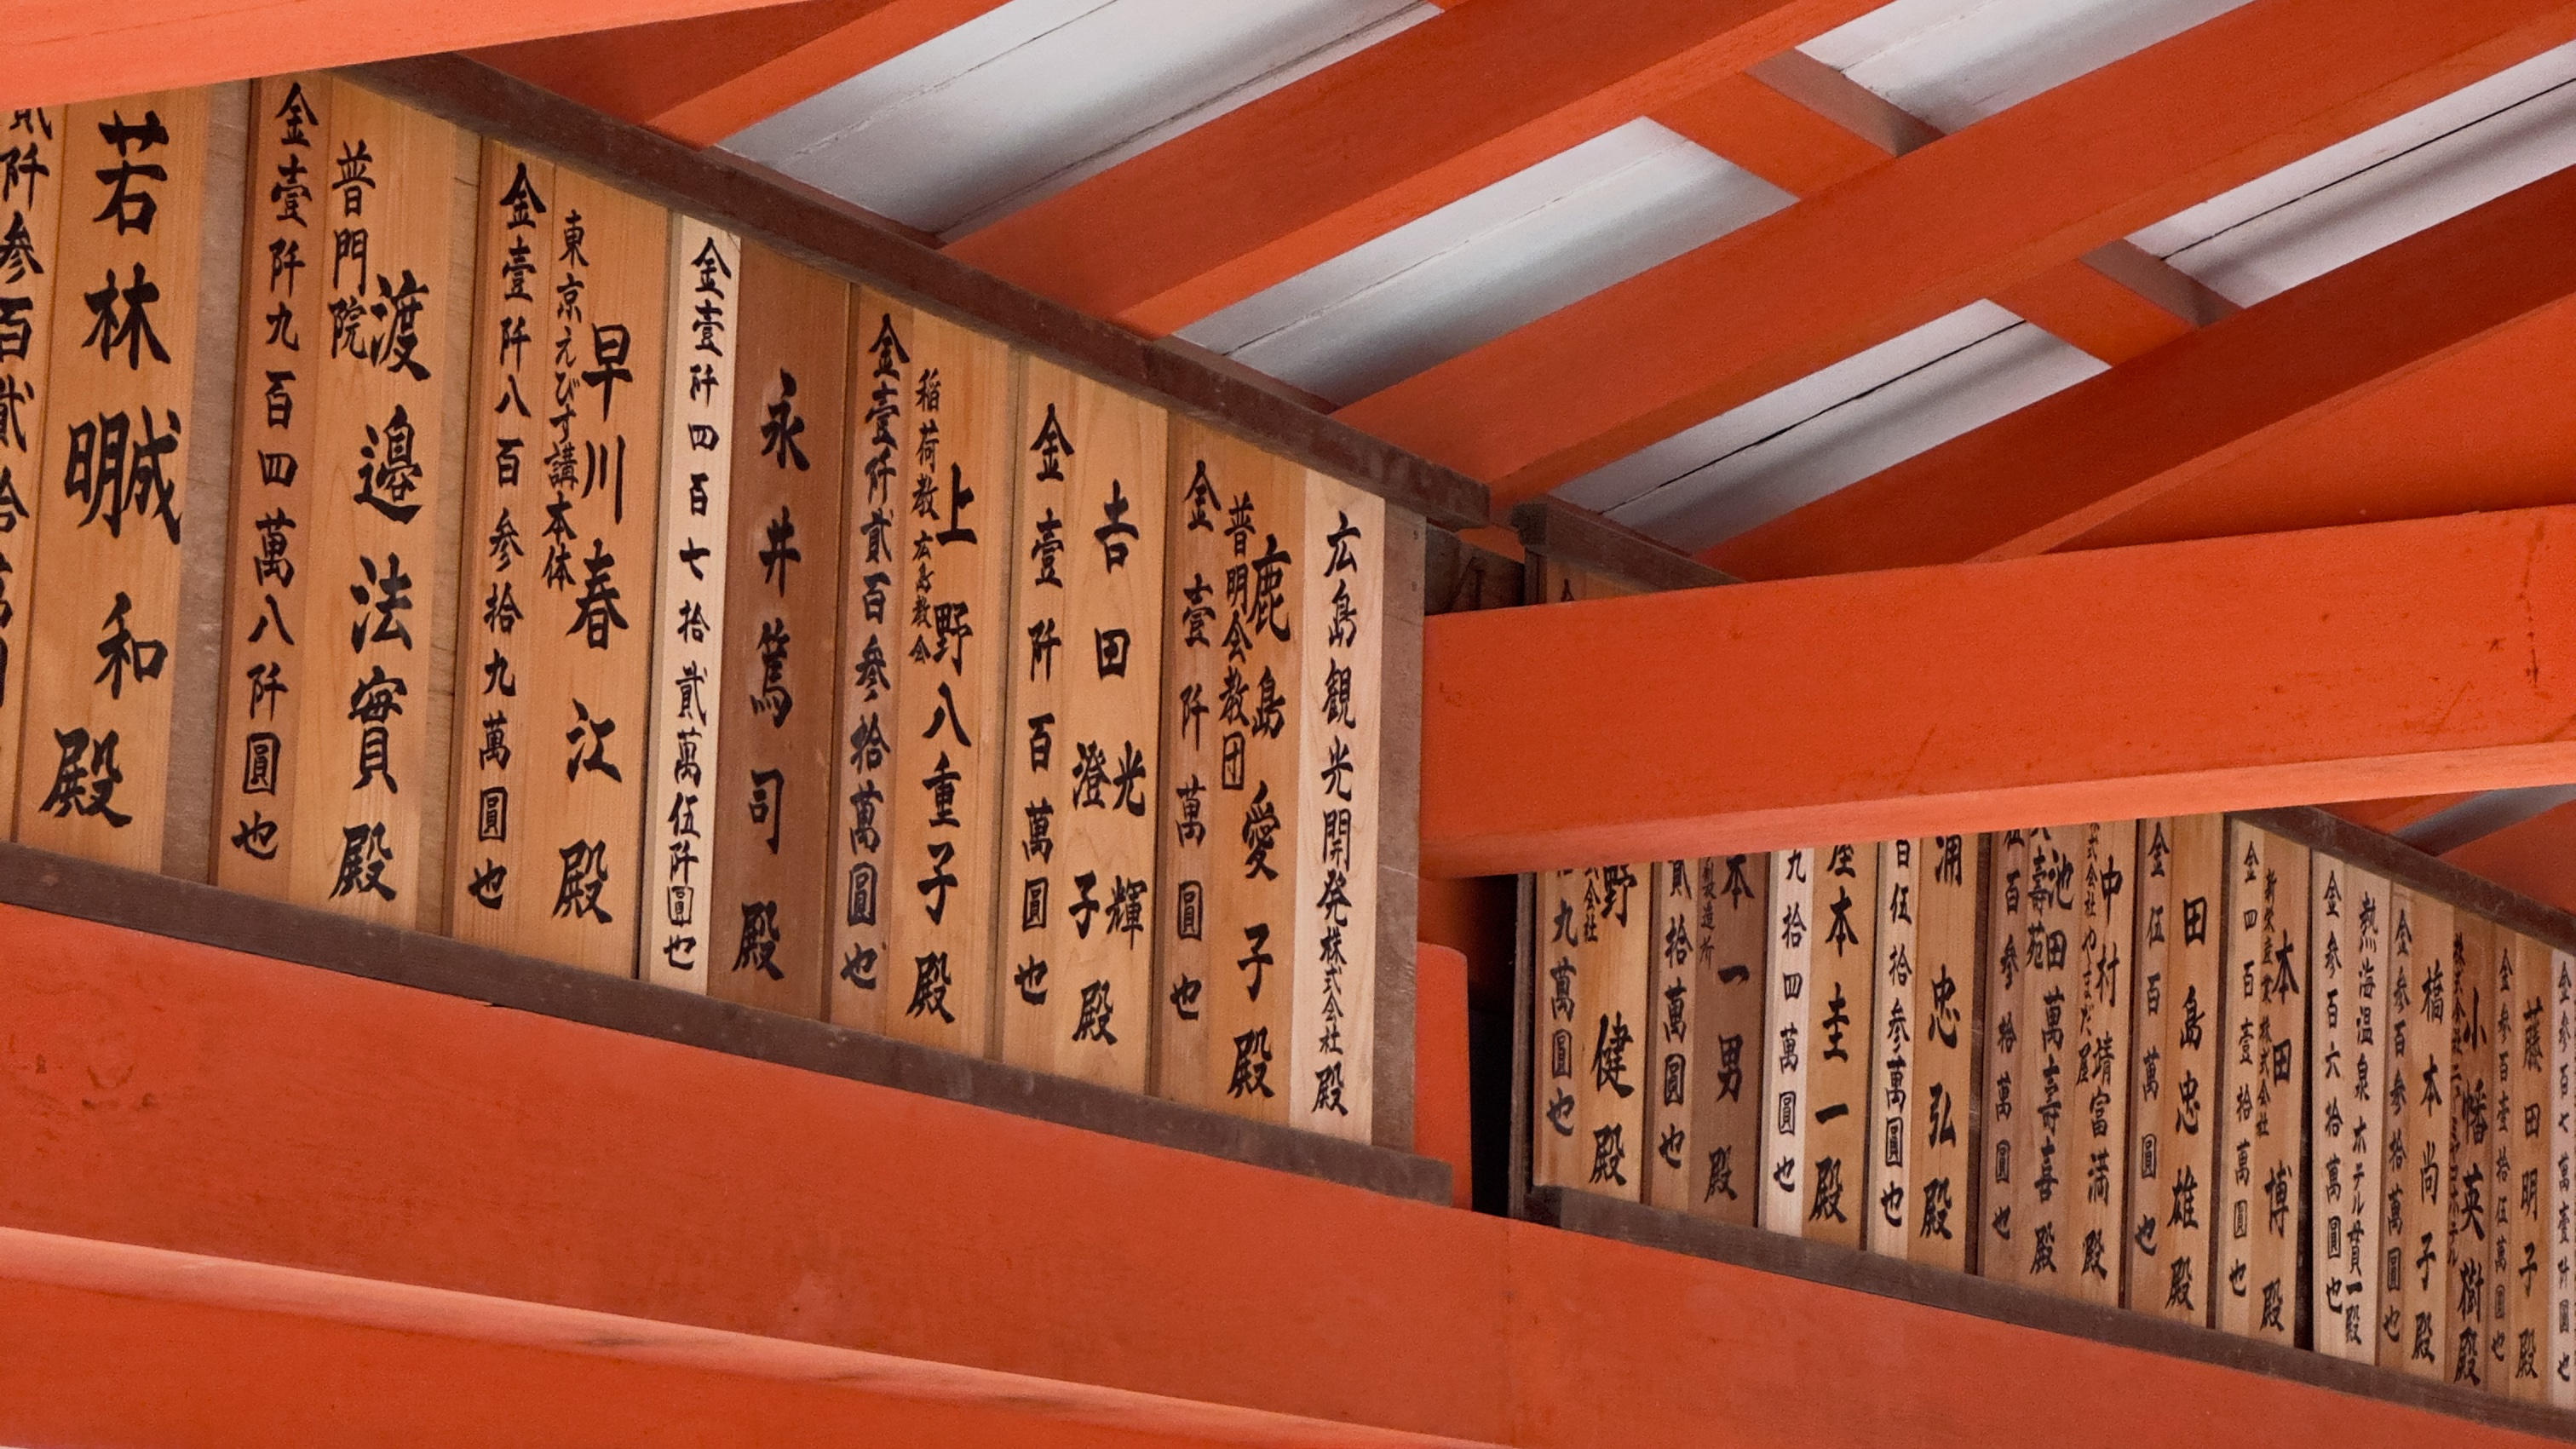 貳阡参百貳拾萬
若林 和 殿
金壹阡九百四萬八阡圓也
普門院
渡邉法實殿
金壹阡八百参拾九萬圓也
東京えびす講本体
早川春江殿
金壹阡四百七拾貳萬伍阡圓也
永井篤司殿
金壹阡貳百参拾萬圓也
稲荷教広島教会
上野八重子殿
金壹阡百萬圓也
吉田光輝
澄子殿
金壹阡萬圓也
普明会教団
鹿島愛子殿
広島観光開発株式会社殿
九萬圓也
会社
野健殿
貳拾萬圓也
製造所
本一男殿
九拾四萬圓也
屋本圭一殿
百伍拾参萬圓也
浦忠弘殿
伍百参拾萬圓也
壽苑
池田萬壽喜殿
式会社やまだ屋
中村靖富満殿
金伍百萬圓也
田島忠雄殿
金四百壹拾萬圓也
新栄産業株式会社
本田博殿
金参百六拾萬圓也
熱海温泉ホテル貫一殿
金参百参拾萬圓也
橋本尚子殿
株式会社ニューミヤコホテル
小幡英樹殿
金参百壹拾伍萬圓也
藤田明子殿
金参百七萬壹阡圓也